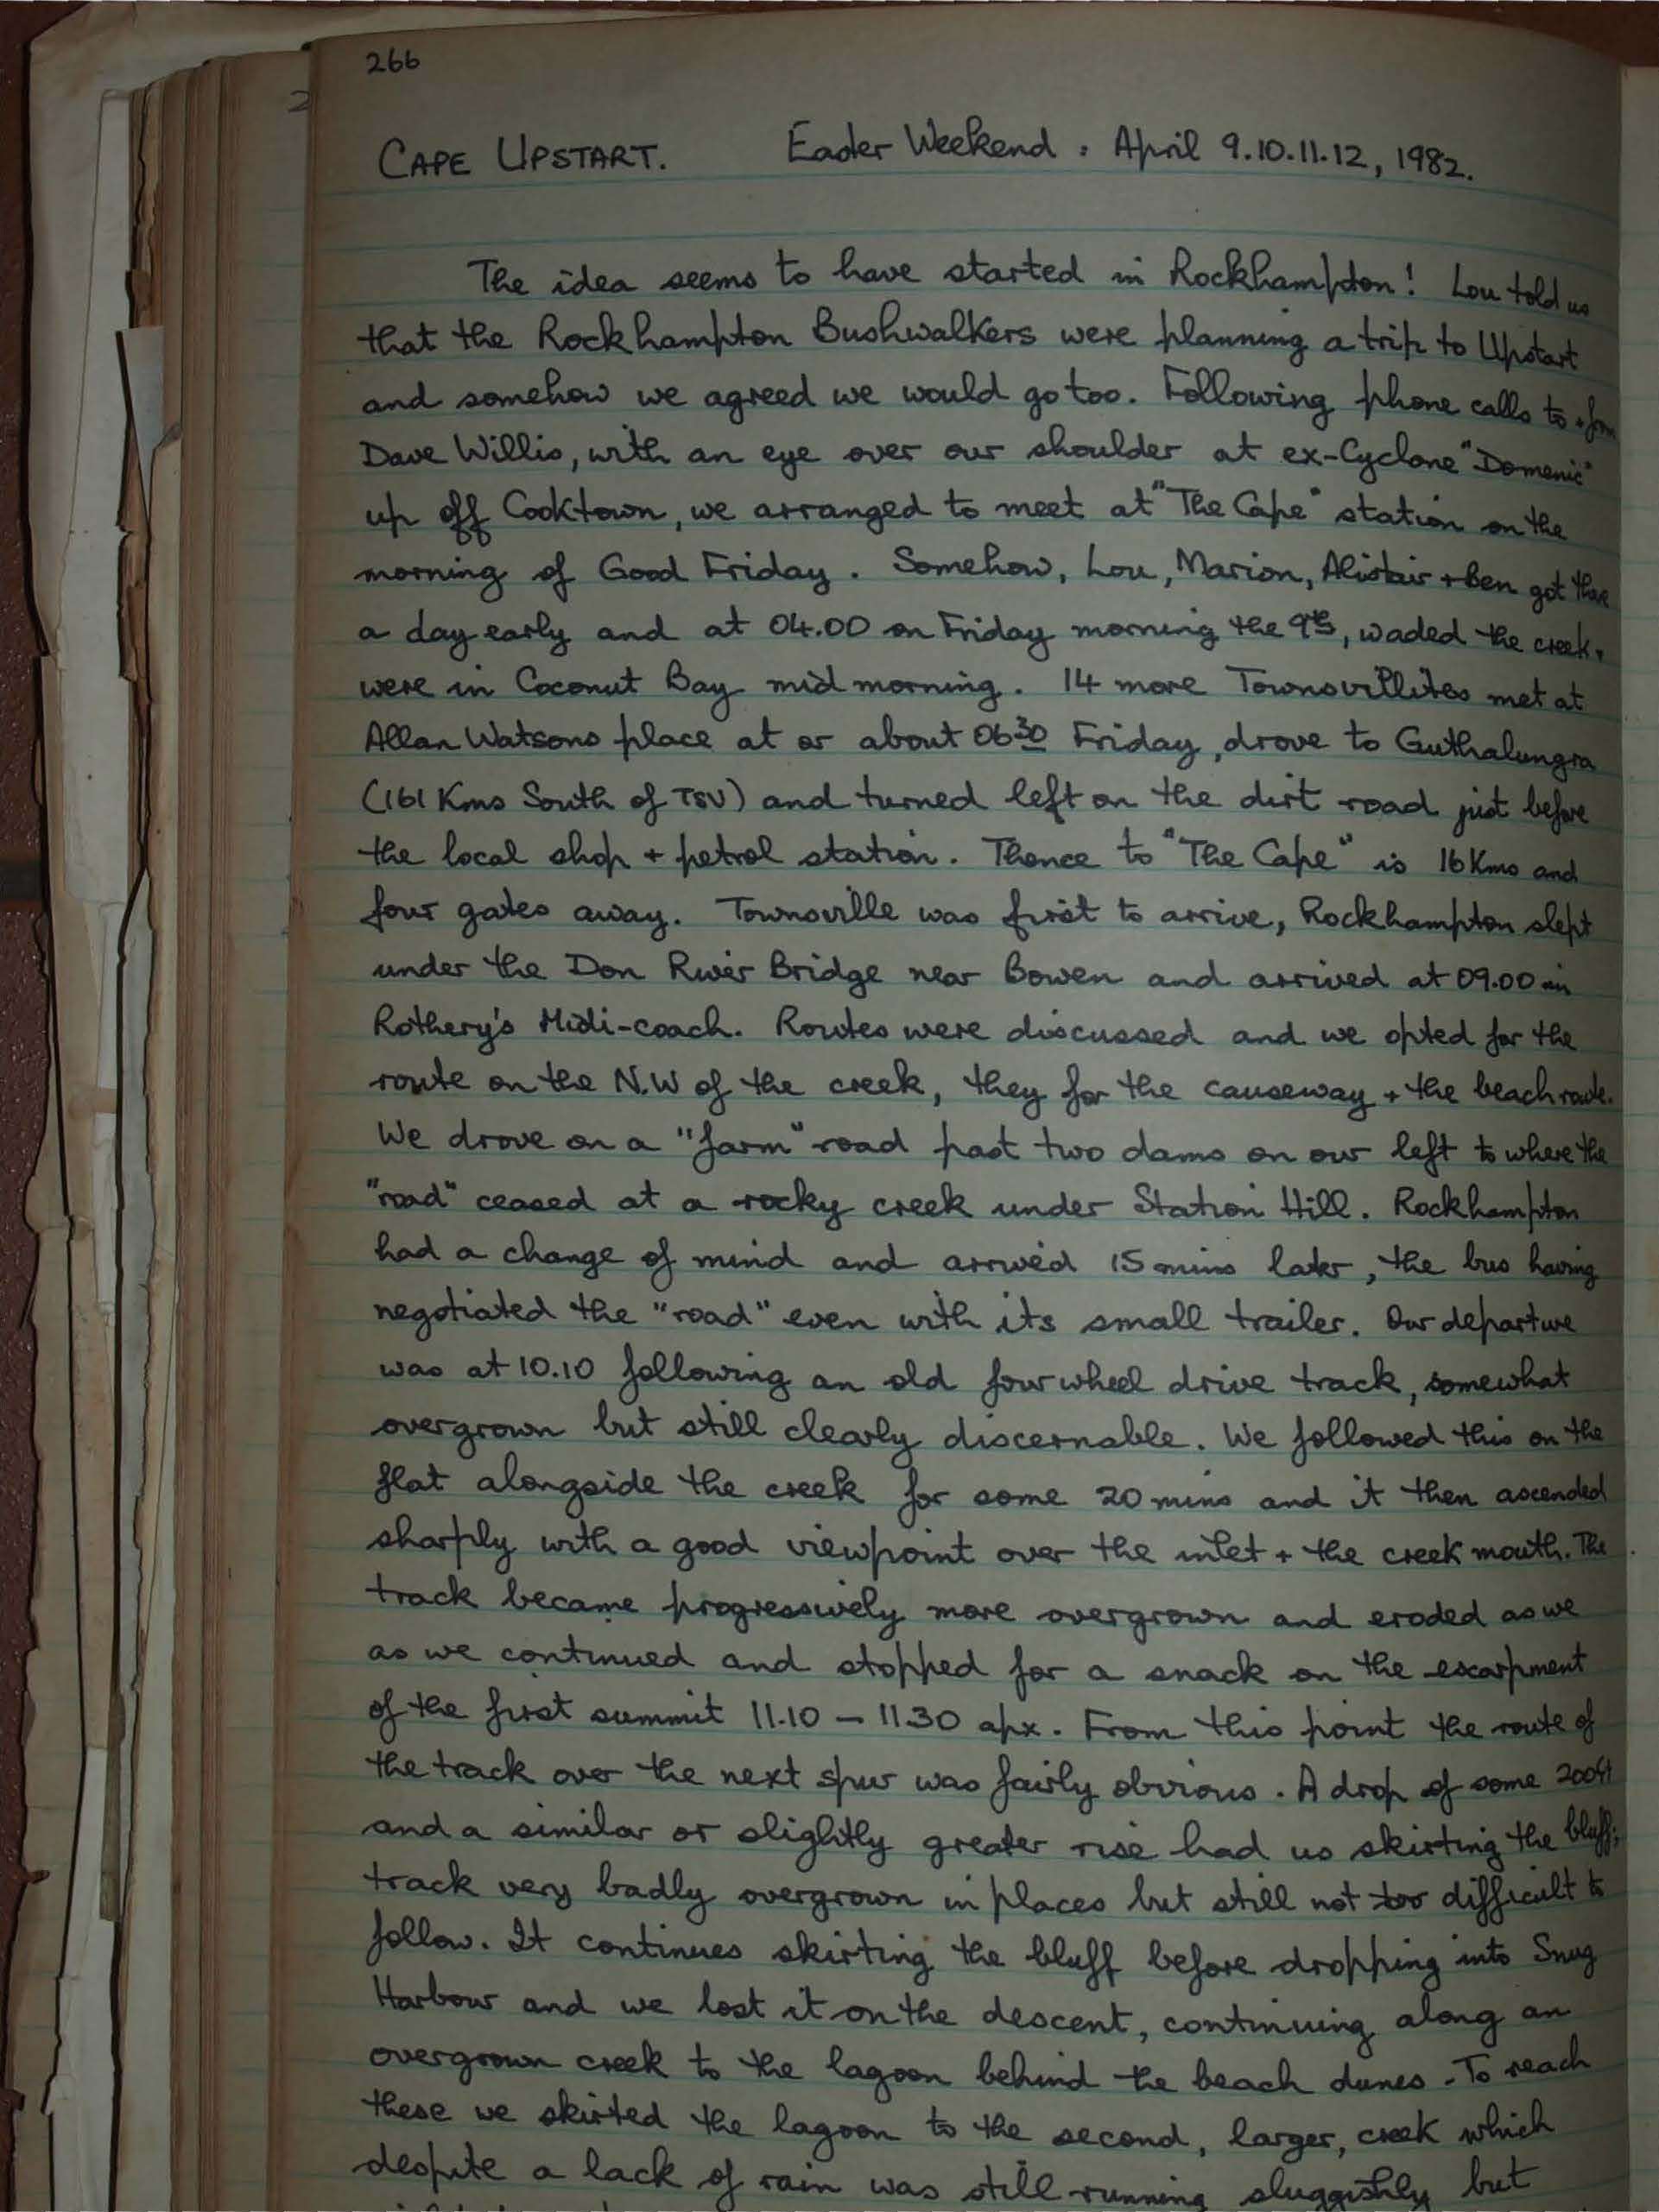 266
CAPE UPSTART. Easter Weekend : April 9.10.11.12, 1982.
The idea seems to have started in Rockhampton! Lou told us
that the Rockhampton Bushwalkers were planning a trip to Upstart
and somehow we agreed we would go too. Following phone calls to + from
Dave Willis, with an eye over our shoulder at ex-Cyclone "Domenic"
up off Cooktown, we arranged to meet at "The Cape" station on the
morning of Good Friday. Somehow, Lou, Marion, Alistair + Ben got there
a day early and at 04.00 on Friday morning the 9th, waded the creek +
were in Coconut Bay mid morning. 14 more Townsvillites met at
Allan Watsons place at or about 0630 Friday, drove to Guthalungra
(161 Kms South of TSV) and turned left on the dirt road just before
the local shop + petrol station. Thence to "The Cape" is 16 Kms and
four gates away. Townsville was first to arrive, Rockhampton slept
under the Don River Bridge near Bowen and arrived at 09.00 in
Rothery's Midi-coach. Routes were discussed and we opted for the
route on the N.W of the creek, they for the causeway + the beach route.
We drove on a "farm" road past two dams on our left to where the
"road" ceased at a rocky creek under Station Hill. Rockhampton
had a change of mind and arrived 15 mins later, the bus having
negotiated the "road" even with its small trailer. Our departure
was at 10.10 following an old four wheel drive track, somewhat
overgrown but still clearly discernable. We followed this on the
flat alongside the creek for some 20 mins and it then ascended
sharply with a good viewpoint over the inlet + the creek mouth. The
track became progressively more overgrown and eroded as we
as we continued and stopped for a snack on the escarpment
of the first summit 11.10 - 11.30 apx. From this point the route of
the track over the next spur was fairly obvious. A drop of some 200ft
and a similar or slightly greater rise had us skirting the bluff;
track very badly overgrown in places but still not too difficult to
follow. It continues skirting the bluff before dropping into Snug
Harbour and we lost it on the descent, continuing along an
overgrown creek to the lagoon behind the beach dunes. To reach
these we skirted the lagoon to the second, larger, creek which
despite a lack of rain was still running sluggishly but